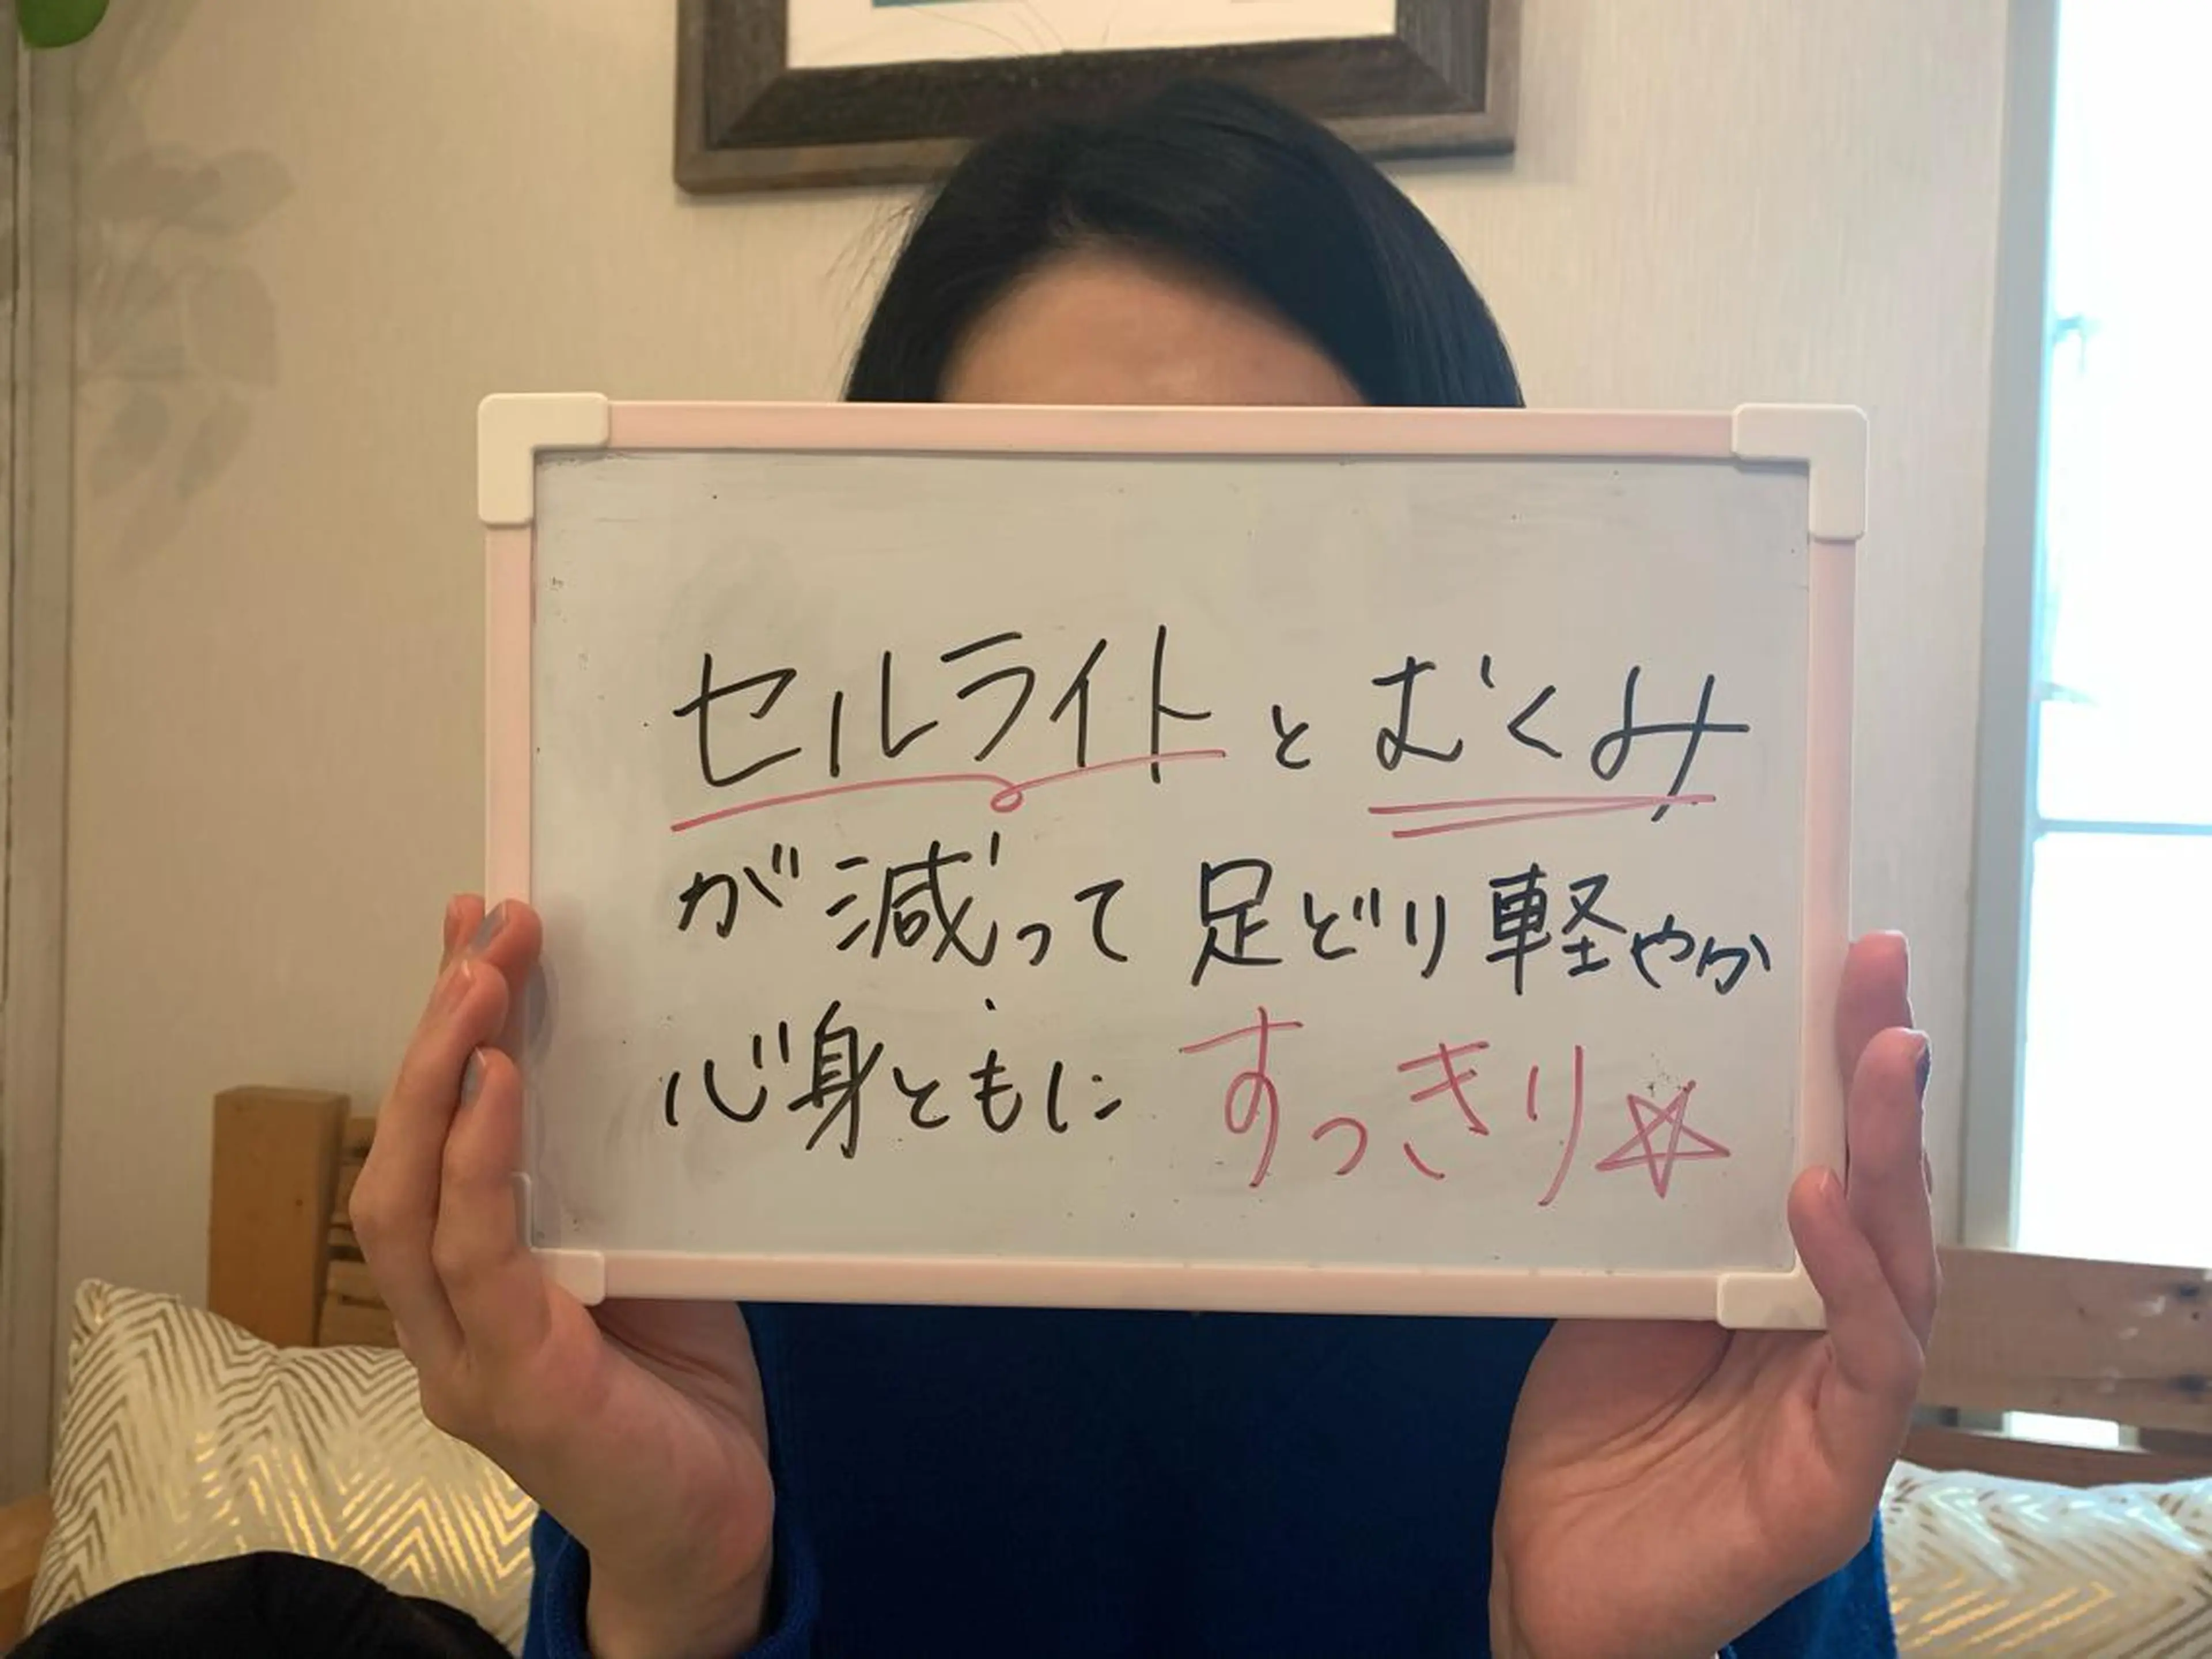 セルライトとむくみ
が減って足どり軽やか
心身ともにすっきり☆